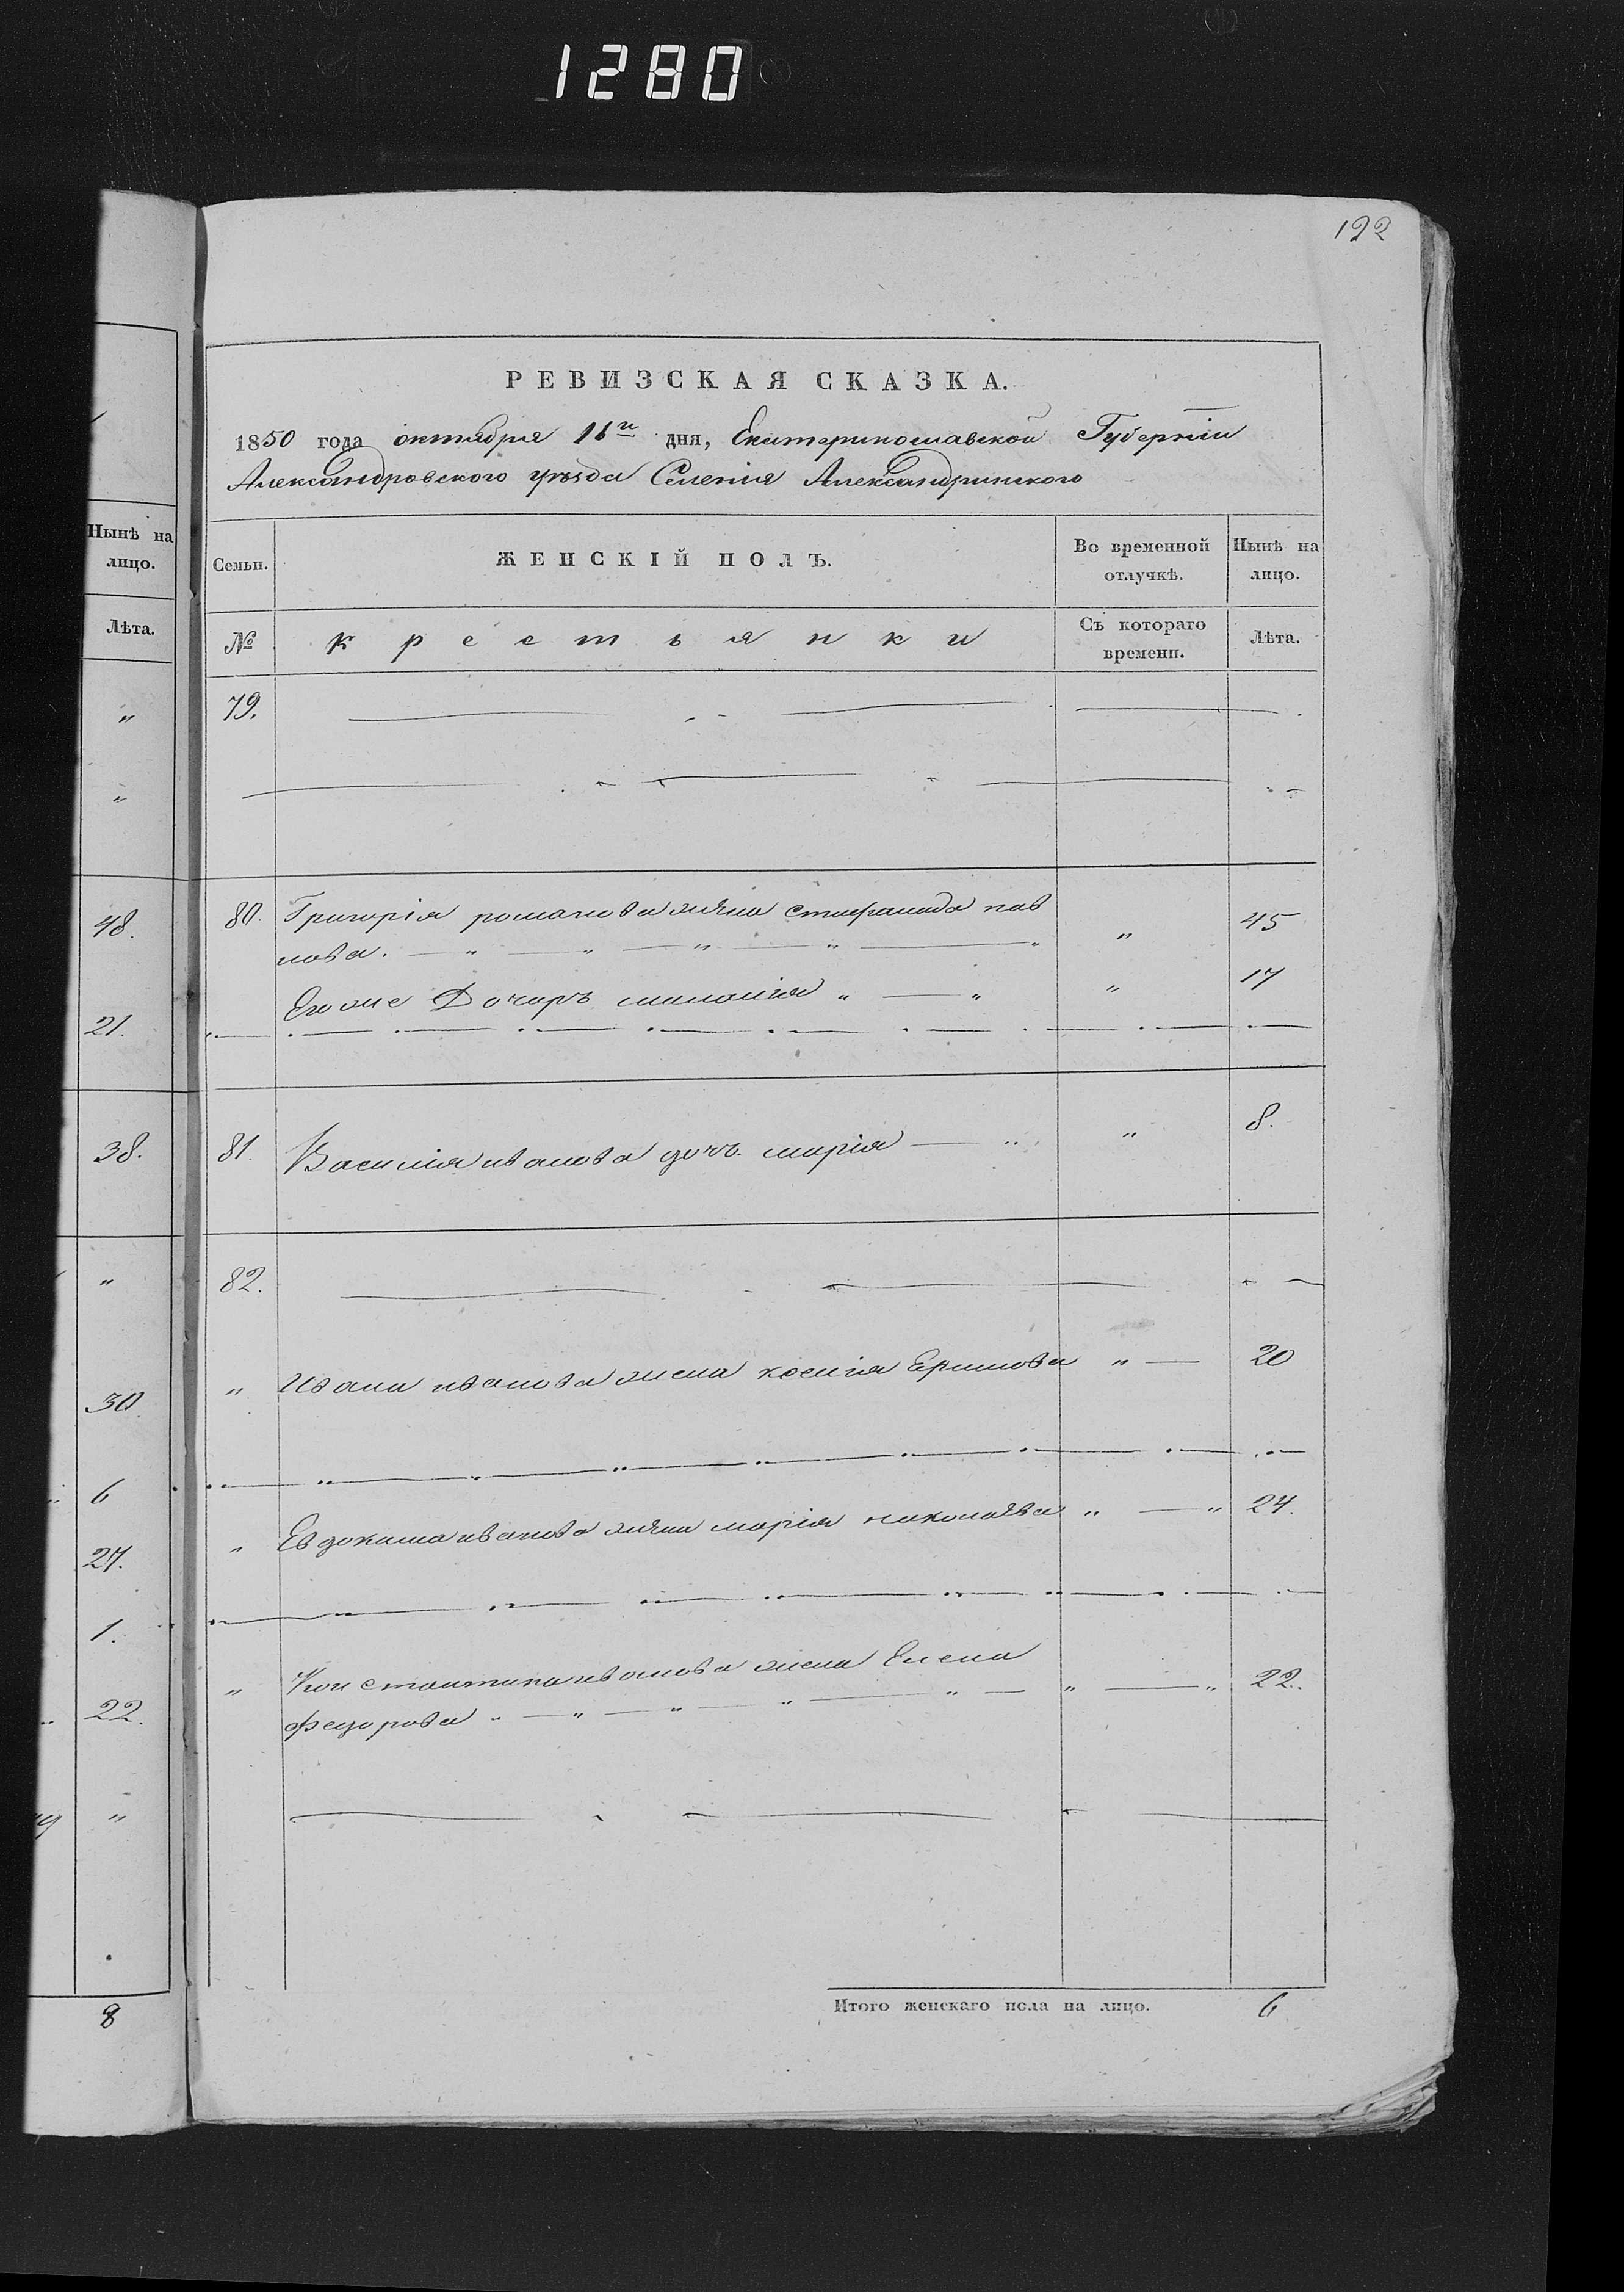 1280
192
РЕВИЗСКАЯ СКАЗКА.
1850 года октября 16го дня, Екатеринославской Губерніи
Александровского уѣзда Селенія Александринского
Нынѣ на лицо.
Лѣта.
"
"
48.
21.
38.
"
30
6
27.
1.
22.
"
8
Семьи.
ЖЕНСКІЙ ПОЛЪ.
Во временной отлучкѣ.
Нынѣ на лицо.
№
крестьянки
Съ котораго времени.
Лѣта.
79.
80. Григорія романова жена стефанида пав " 45
лова.
Егоже Дочеръ маланія " 17
81. Василія иванова дочь марія " 8.
82.
" Ивана иванова жена ксенія Ефимова " 20
" Евдокима иванова жена марія николаѣва " 24.
" Константина иванова жена Елена " 22.
федорова
Итого женскаго пола на лицо. 6